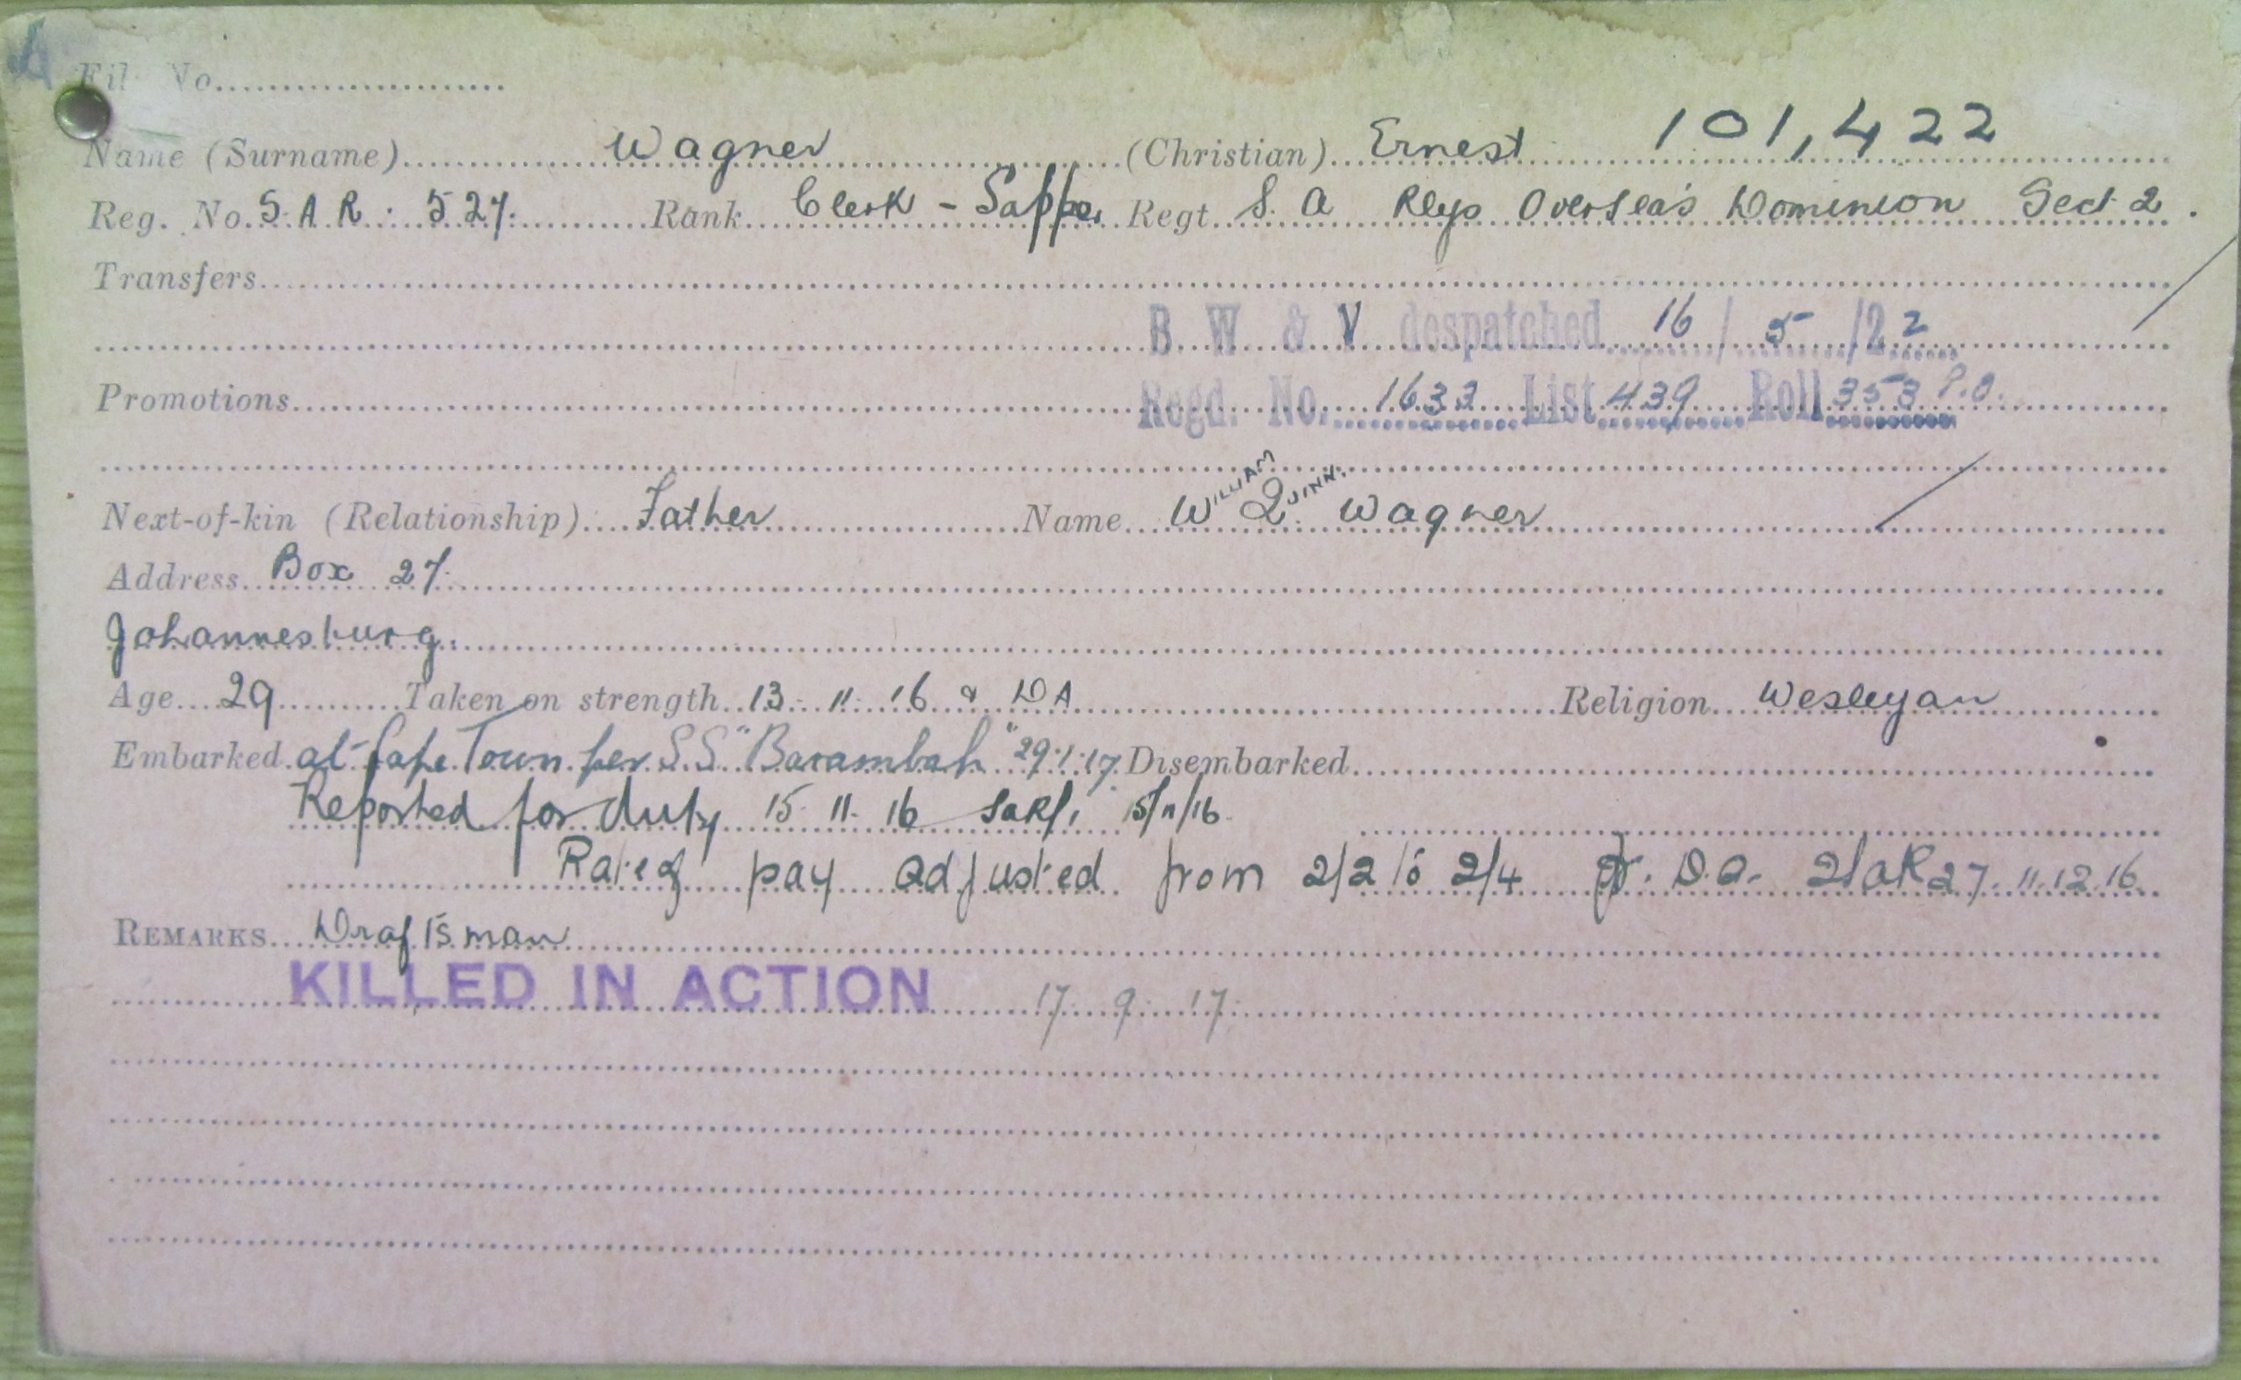 File No
Name (Surname) Wagner (Christian) Ernest 101,422
Reg. No. S.A.R. 527. Rank Clerk - Sapper Regt S. A Rlys Oversea's Dominion Sect 2.
Transfers
B. W. & V. despatched 16 / 5 /22
Promotions Regd. No. 1633 List 439 Roll 353 P.O.
WILLIAM QUINN.
Next-of-kin (Relationship) Father Name W Q. Wagner
Address Box 27.
Johannesburg.
Age 29 Taken on strength 13. 11. 16 & DA Religion Wesleyan
Embarked at Cape Town per S.S "Barambah" 29.1.17 Disembarked
Reported for duty 15 11. 16 15/11/16
Rate of pay adjusted from 2/2 to 2/4 D.O. 27. 11.12.16
REMARKS Draftsman
KILLED IN ACTION 17. 9. 17.